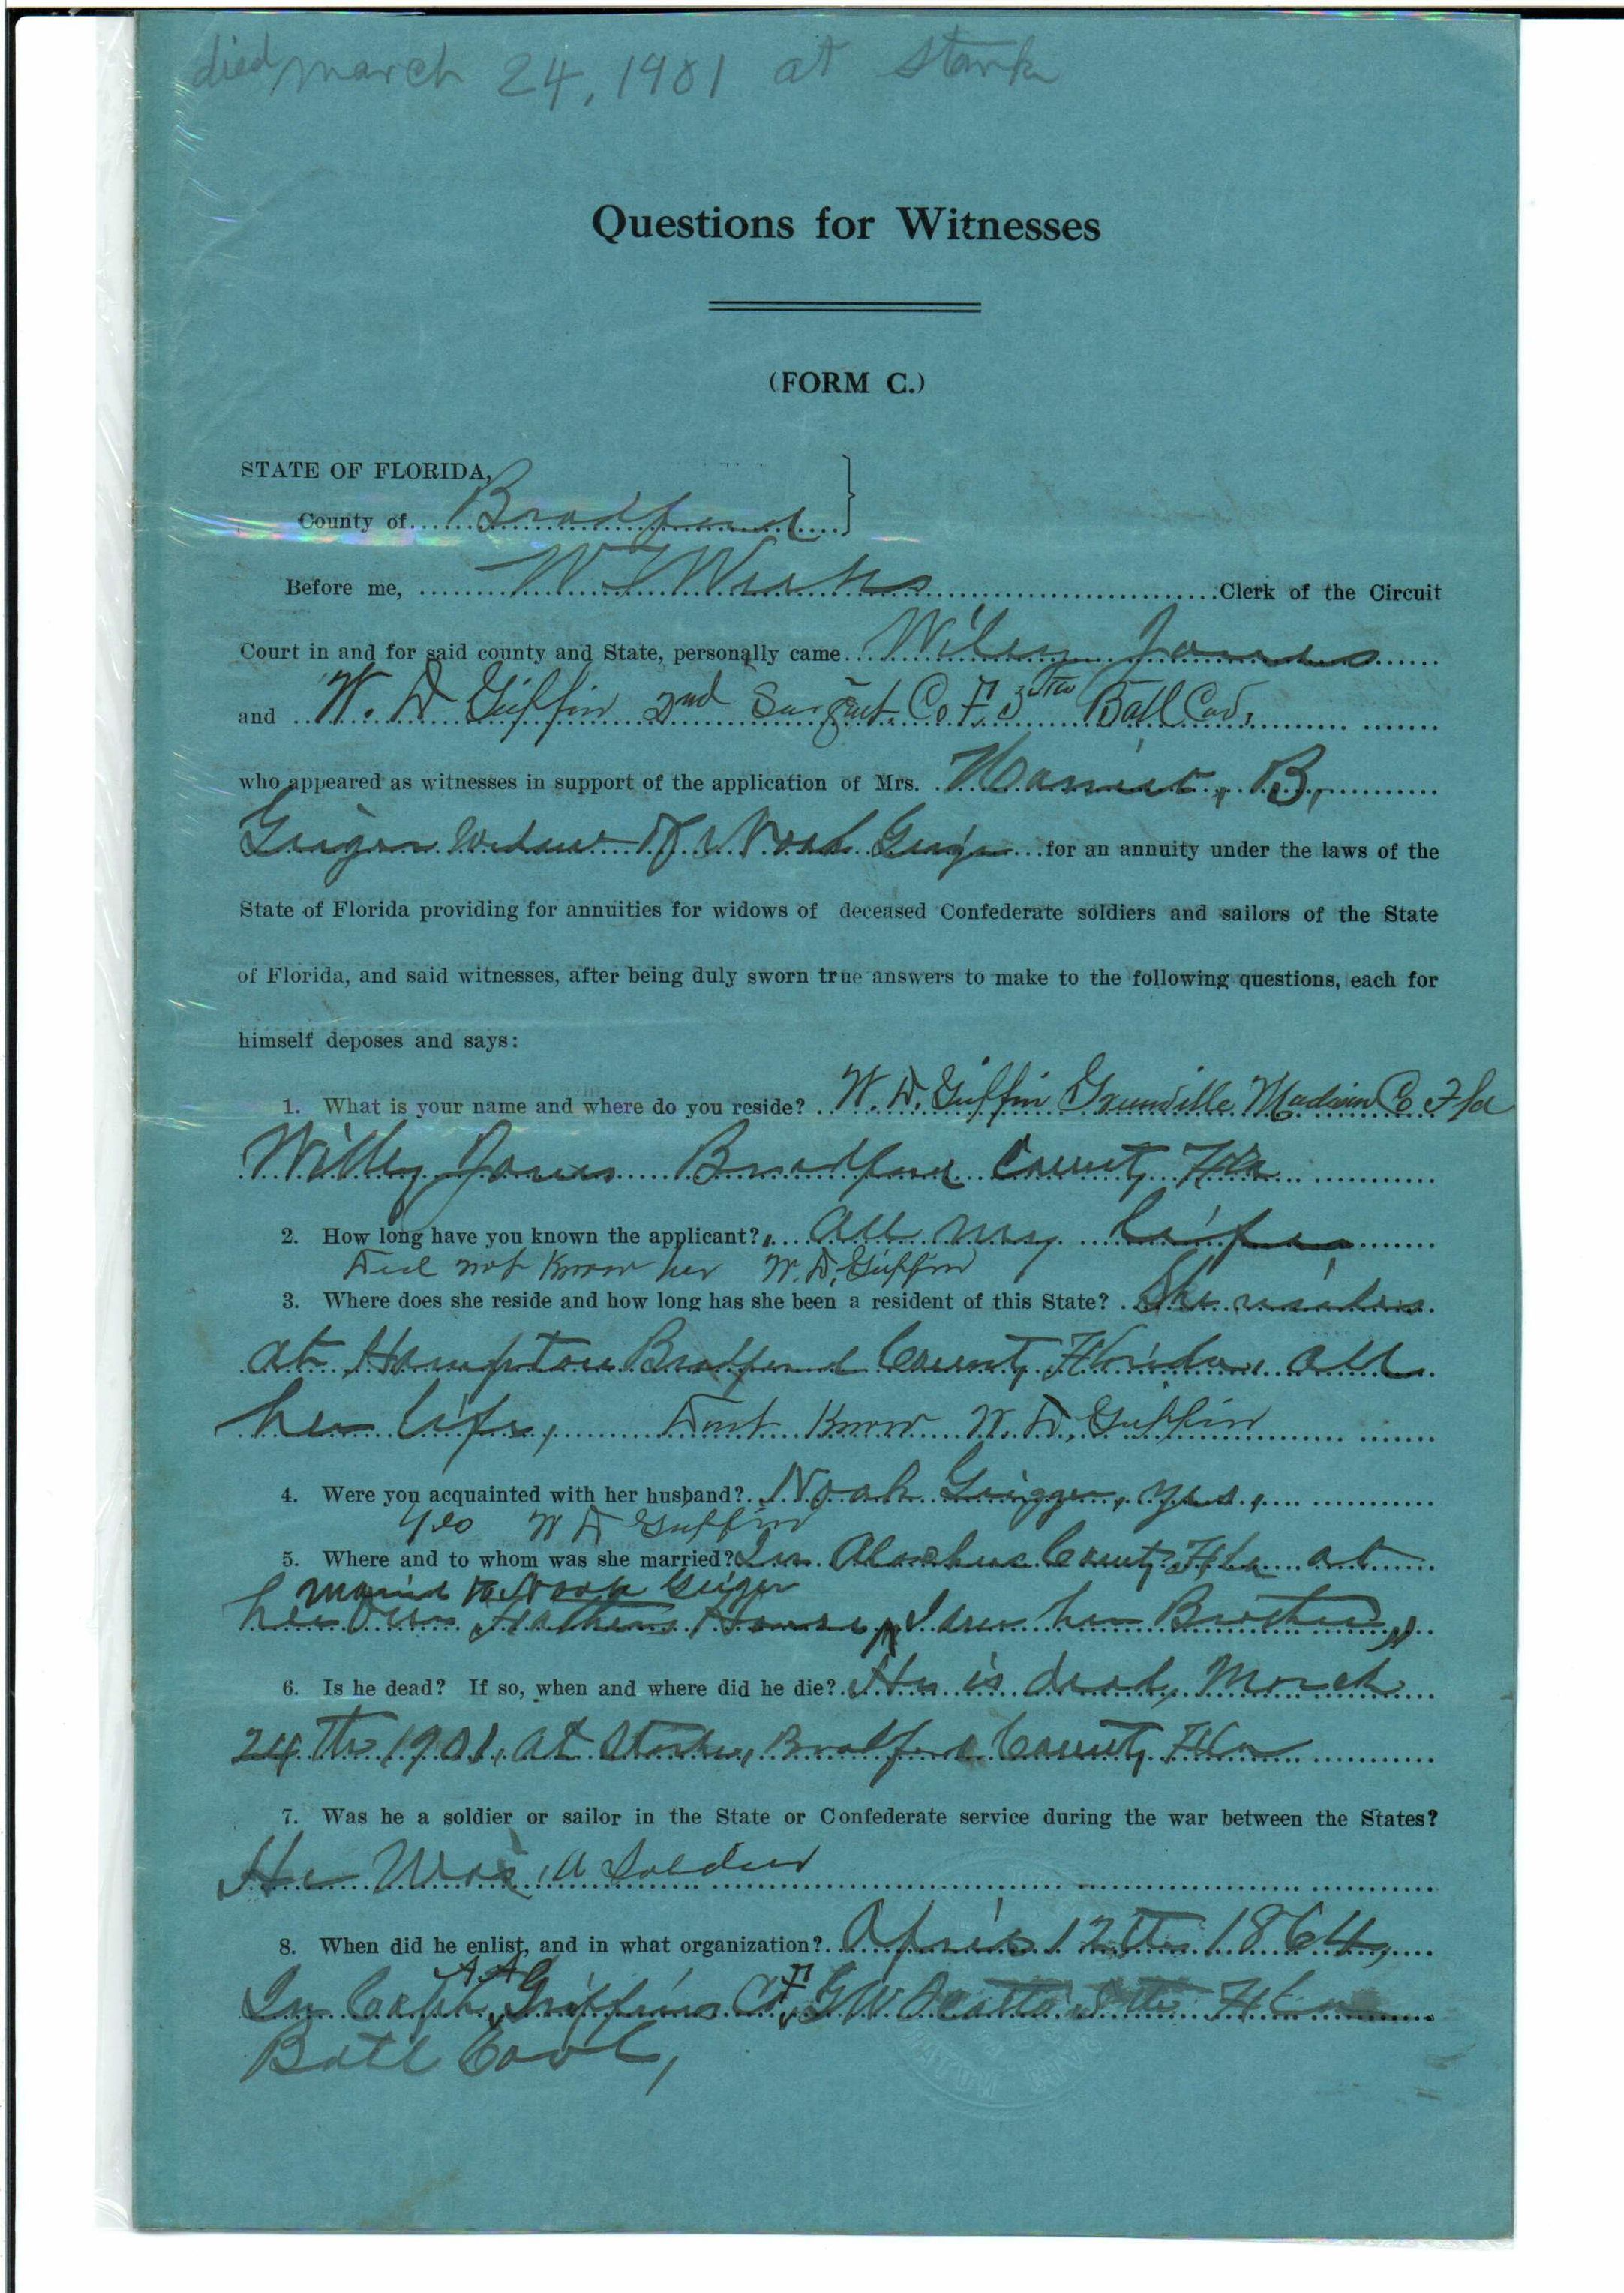 died march 24, 1901 at Stark
Questions for Witnesses
(FORM C.)
STATE OF FLORIDA,
County of Bradford
Before me, W T Weeks Clerk of the Circuit
Court in and for said county and State, personally came Wiley Jones
and W. D Giffin 2nd Co F 5th Batl Cav.
who appeared as witnesses in support of the application of Mrs. Harriet, B,
Geiger Widow Of Noah Geiger for an annuity under the laws of the
State of Florida providing for annuities for widows of deceased Confederate soldiers and sailors of the State
of Florida, and said witnesses, after being duly sworn true answers to make to the following questions, each for
himself deposes and says:
1. What is your name and where do you reside? W. D. Giffin Greenville Madison Co Fla
Willey Jones Bradford County Fla
2. How long have you known the applicant? all my life
Did not Know her W. D. Giffin
3. Where does she reside and how long has she been a resident of this State? She resides
at Hampton Bradford County Florida. all
her life, Dont Know W. D. Giffin
4. Were you acquainted with her husband? Noah Geigger, yes,
Yes W D Giffin
5. Where and to whom was she married? In Alachua County Fla at
married to Noah Geiger
her Own Fathers House, I am her Brother,
6. Is he dead? If so, when and where did he die? He is dead, March
24th 1901, at Starke, Bradford County Fla
7. Was he a soldier or sailor in the State or Confederate service during the war between the States?
He Was a Soldier
8. When did he enlist, and in what organization? 12th 1864,
In Capt, Griffins Co F, G W Scotts 5th Fla
Batl Cavl,